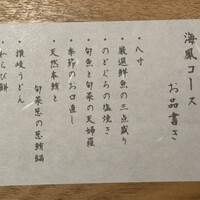 海風コース
お品書き
・八寸
・厳選鮮魚の三点盛り
・のどぐろの塩焼き
・旬魚と旬菜の天婦羅
・季節のお口直し
・天然本鮪と
旬菜葱の葱鮪鍋
・讃岐うどん
・わらび餅